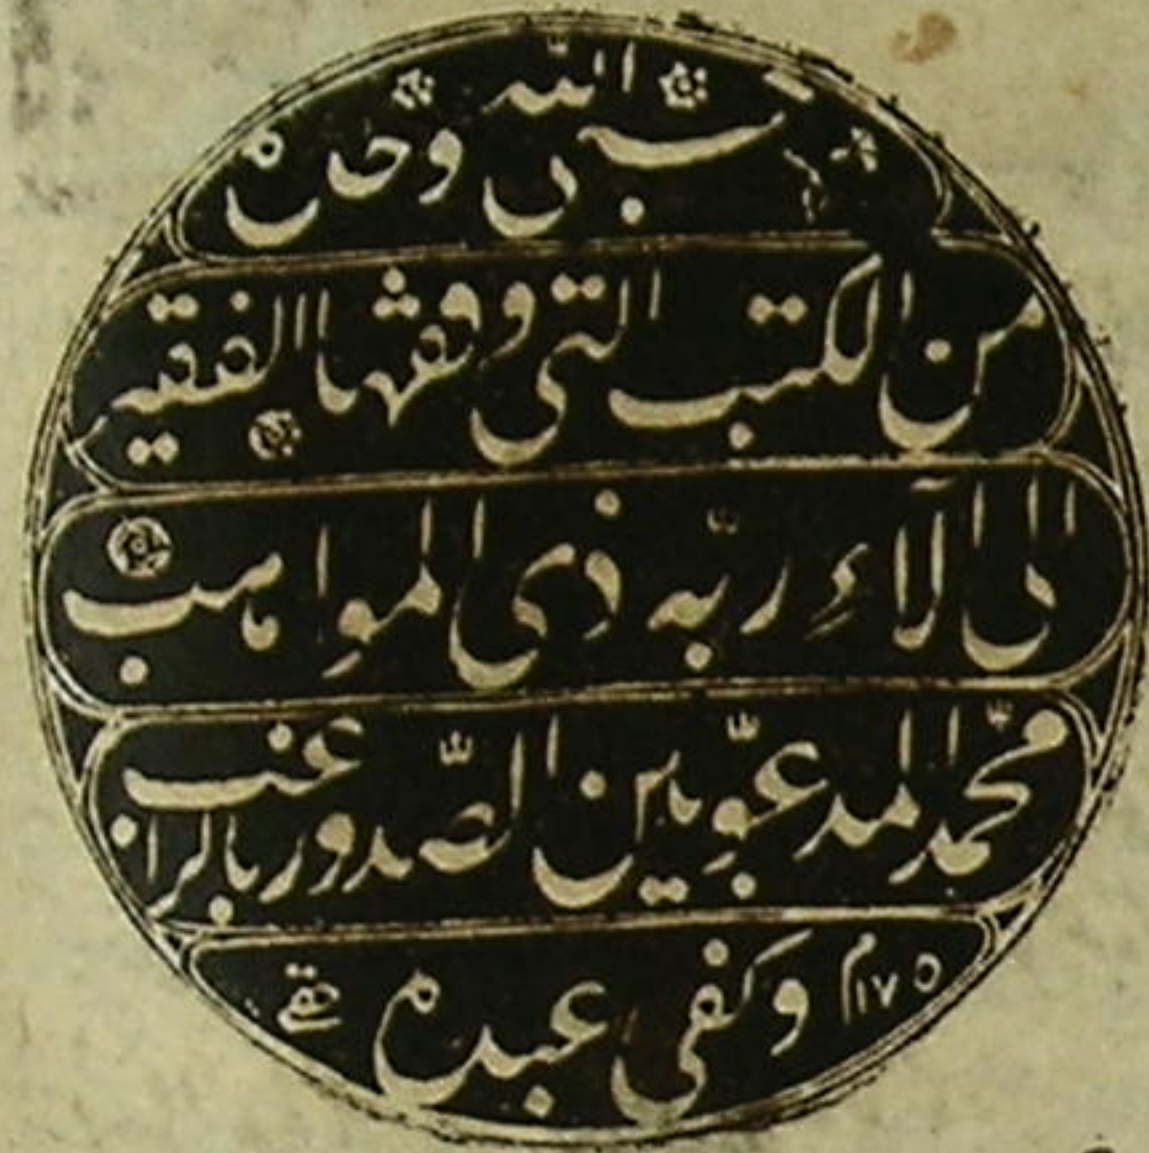 حسبى الله وحده
من الكتب التى وقفها الفقير
الى آلاءِ ربّه ذِى الموِاهب
محمّد المدعوّ بين الصّدور بالراغب
وكفى عبده